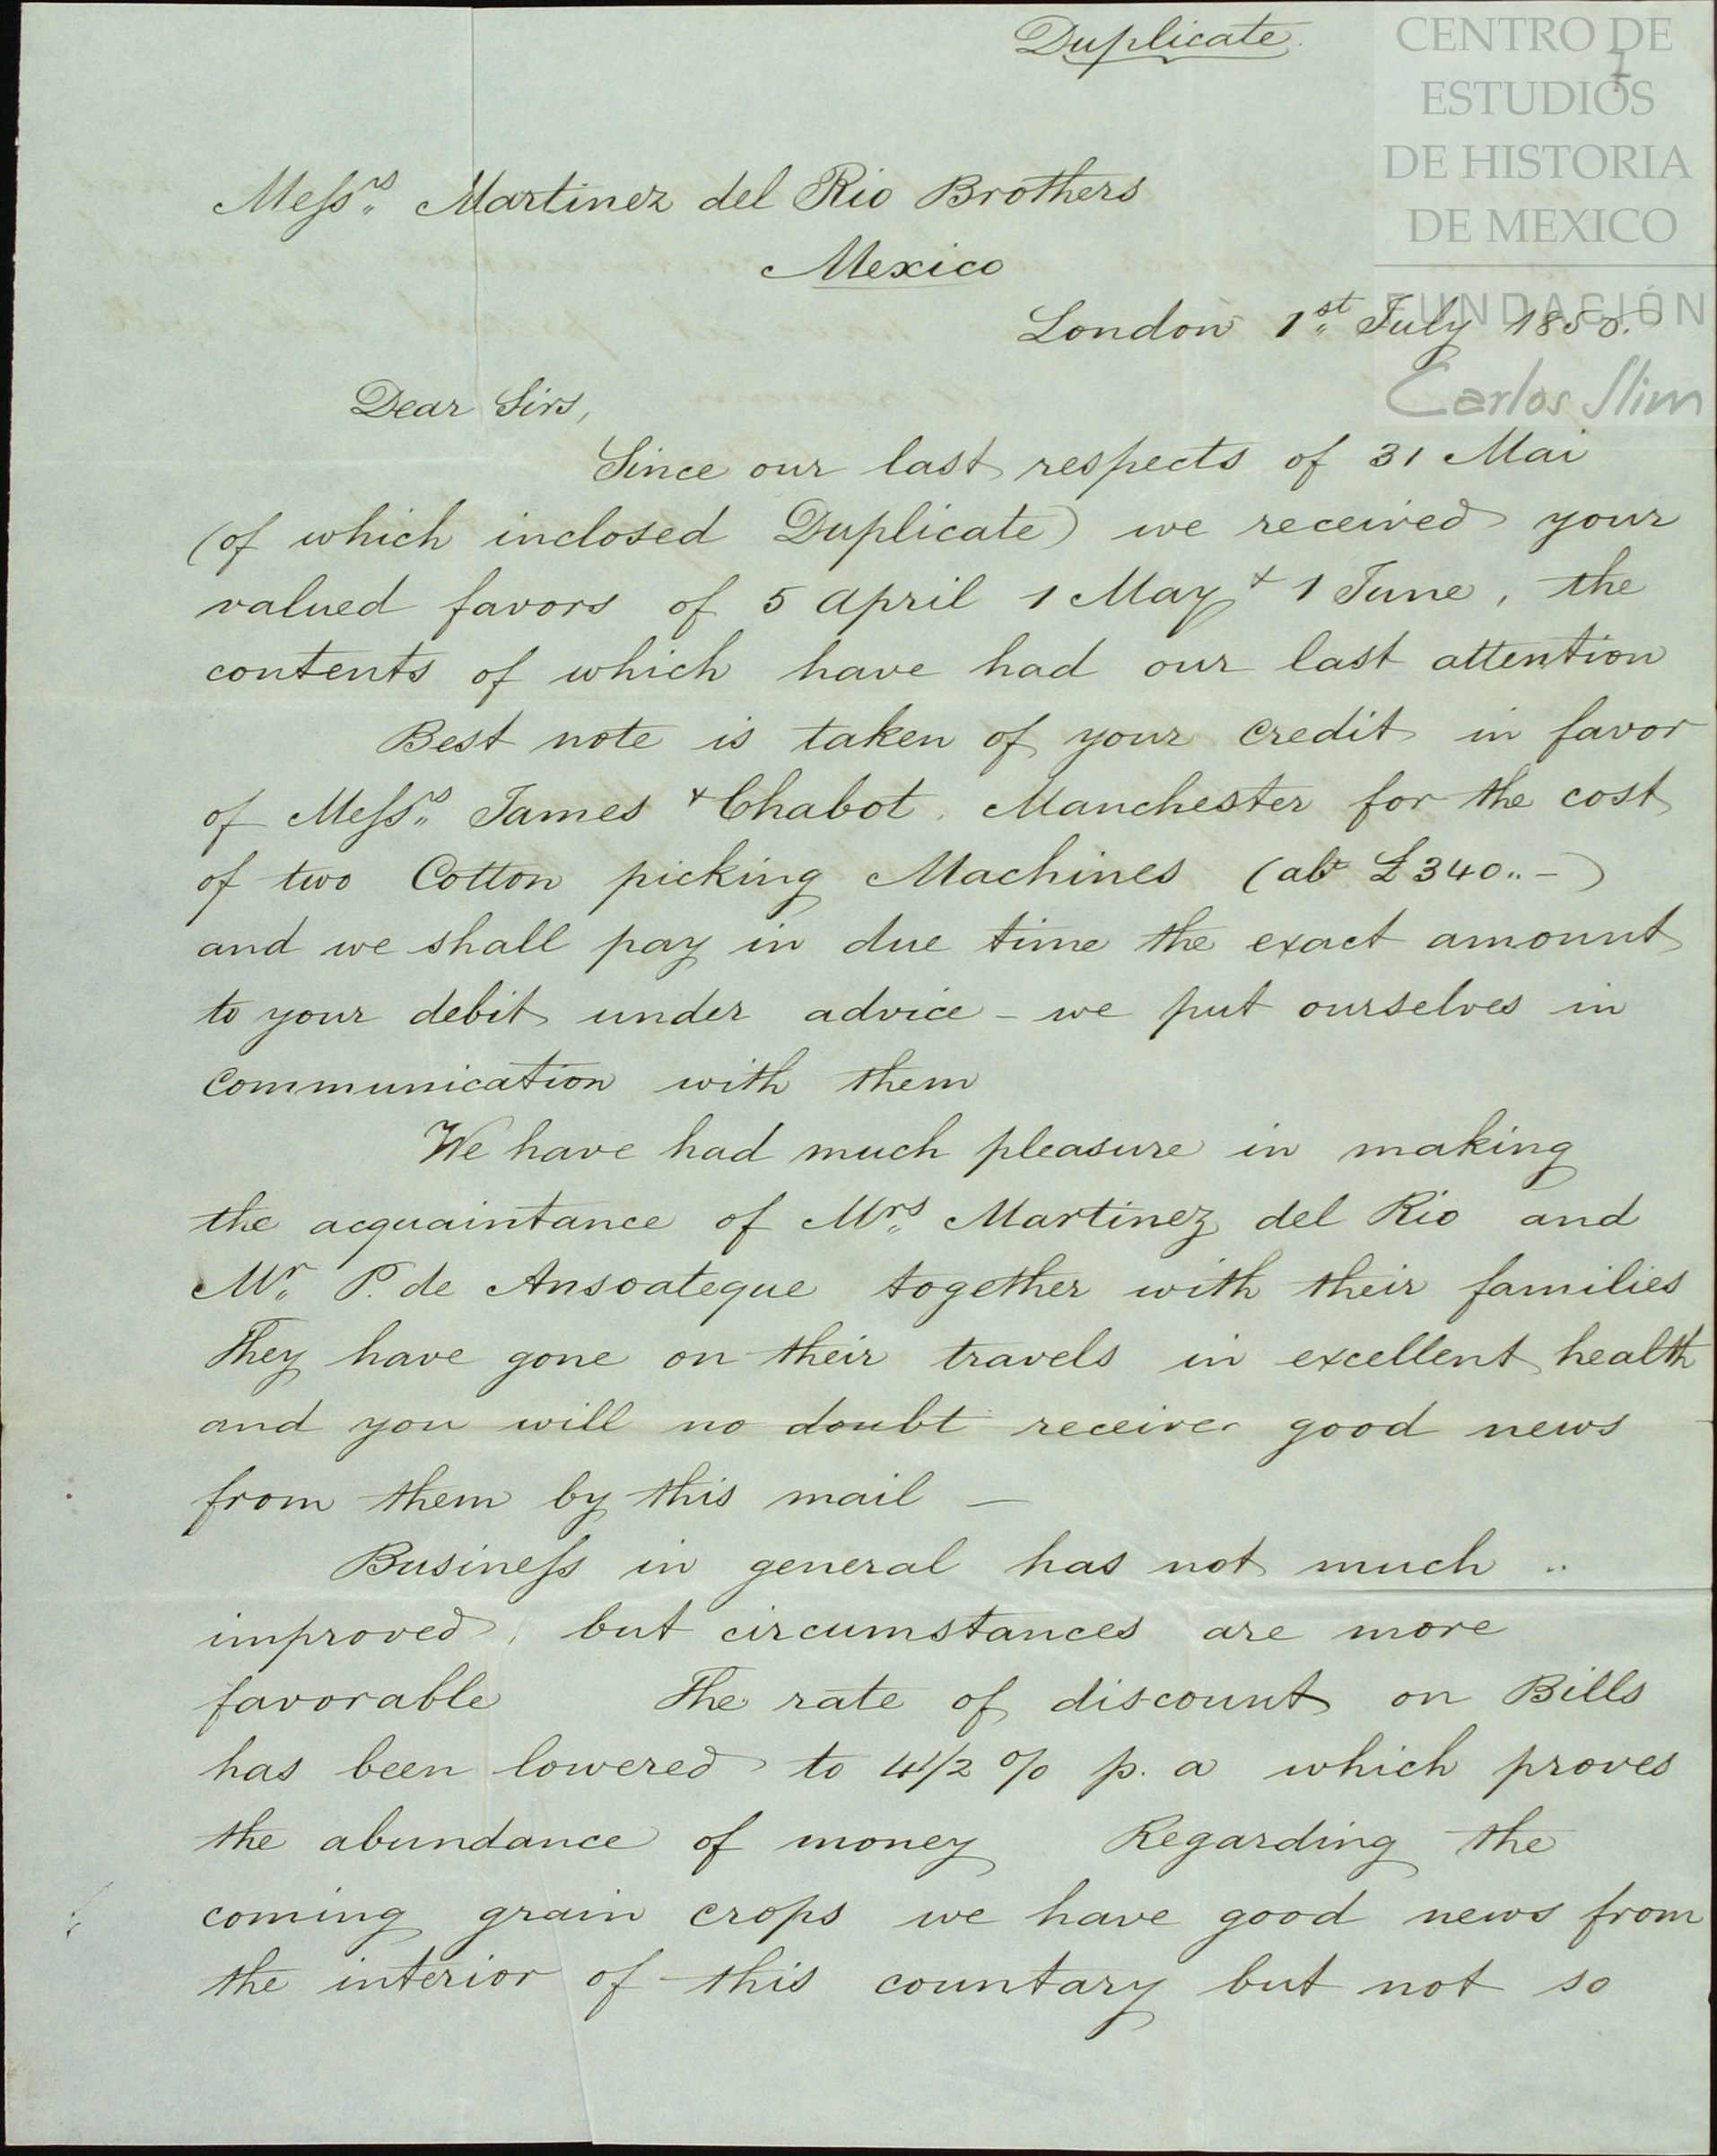 Duplicate.
CENTRO DE
ESTUDIOS
DE HISTORIA
DE MEXICO
FUNDACIÓN
Carlos Slim
Messrs. Martinez del Rio Brothers
Mexico
London 1st July 1850.
Dear Sirs,
Since our last respects of 31 Mai
(of which inclosed Duplicate) we received your
valued favors of 5 April 1 May & 1 June, the
contents of which have had our last attention
Best note is taken of your credit in favor
of Messrs. James & Chabot. Manchester for the cost
of two Cotton picking Machines (abt £340..-)
and we shall pay in due time the exact amount
to your debit under advice - we put ourselves in
communication with them
We have had much pleasure in making
the acquaintance of Mrs. Martinez del Rio and
Mr. P. de Ansoategue together with their families
They have gone on their travels in excellent health
and you will no doubt receive good news
from them by this mail —
Business in general has not much ..
improved, but circumstances are more
favorable The rate of discount on Bills
has been lowered to 4 1/2 % p. a which proves
the abundance of money Regarding the
coming grain crops we have good news from
the interior of this countary but not so